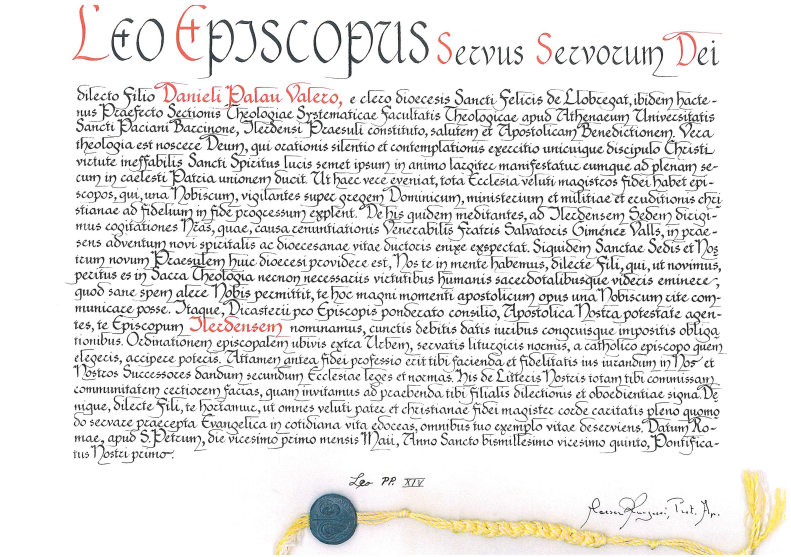 Leo Episcopus Servus Servorum Dei
dilecto Filio Danieli Palau Valero, e clero dioecesis Sancti Felicis de Llobregat, ibidem hacte-
nus Praefecto Sectionis Theologiae Systematicae Facultatis Theologicae apud Athenaeum Universitatis
Sancti Paciani Barcinone, Ilerdensi Praesuli constituto, salutem et Apostolicam Benedictionem. Vera
theologia est noscere Deum, qui orationis silentio et contemplationis exercitio unicuique discipulo Christi
virtute ineffabilis Sancti Spiritus lucis semet ipsum in animo largiter manifestatur eumque ad plenam se-
cum in caelesti Patria unionem ducit. Ut haec vere eveniat, tota Ecclesia veluti magistros fidei habet epi-
scopos, qui, una Nobiscum, vigilantes super gregem Dominicum, ministerium et militiae et eruditionis chri
stianae ad fidelium in fide progressum explent. De his quidem meditantes, ad Ilerdensem Sedem dirigi-
mus cogitationes Nras, quae, causa renuntiationis Venerabilis Fratris Salvatoris Giménez Valls, in prae-
sens adventum novi spiritalis ac dioecesanae vitae ductoris enixe exspectat. Siquidem Sanctae Sedis et Nos
trum novum Praesulem huic dioecesi providere est, Nos te in mente habemus, dilecte Fili, qui, ut novimus,
peritus es in Sacra Theologia necnon necessariis virtutibus humanis sacerdotalibusque videris eminere,
quod sane spem alere Nobis permittit, te hoc magni momenti apostolicum opus una Nobiscum rite com-
municare posse. Itaque, Dicasterii pro Episcopis ponderato consilio, Apostolica Nostra potestate agen-
tes, te Episcopum Ilerdensem nominamus, cunctis debitis datis iuribus congruisque impositis obliga
tionibus. Ordinationem episcopalem ubivis extra Urbem, servatis liturgicis normis, a catholico episcopo quem
elegeris, accipere poteris. Attamen antea fidei professio erit tibi facienda et fidelitatis ius iurandum in Nos et
Nostros Successores dandum secundum Ecclesiae leges et normas. His de Litteris Nostris totam tibi commissam
communitatem certiorem facias, quam invitamus ad praebenda tibi filialis dilectionis et oboedientiae signa. De
nique, dilecte Fili, te hortamur, ut omnes veluti pater et christianae fidei magister corde caritatis pleno quomo
do servare praecepta Evangelica in cotidiana vita edoceas, omnibus tuo exemplo vitae deserviens. Datum Ro-
mae, apud S. Petrum, die vicesimo primo mensis Maii, Anno Sancto bismillesimo vicesimo quinto, Pontifica-
tus Nostri primo.
Leo PP. XIV
Prot. Ap.